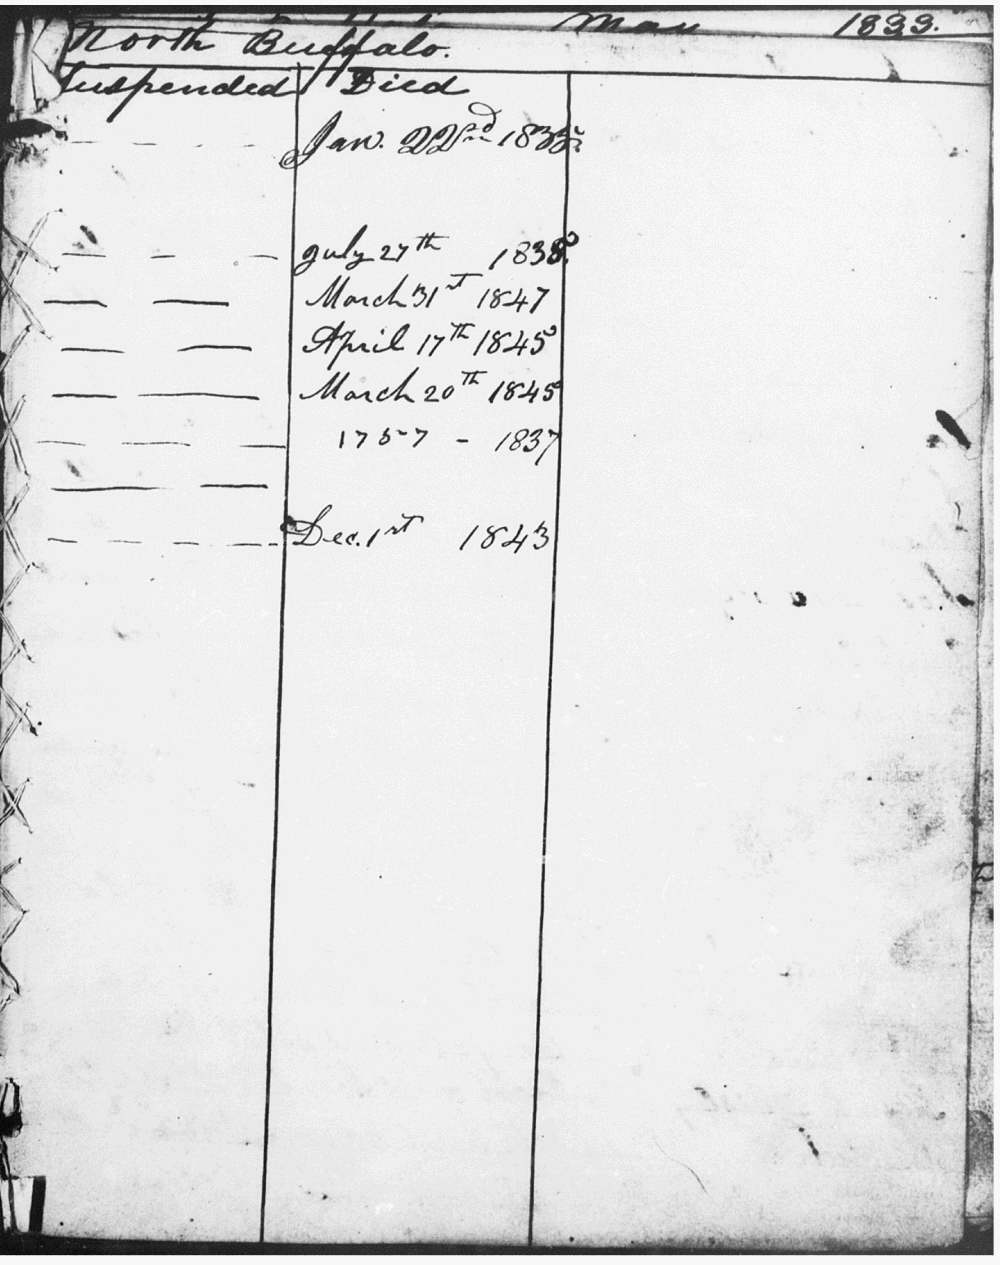 May 1833.
North Buffalo.
Suspended Died
Jan. 22nd 1835
— — — —
July 27th 1838
— — — —
March 31st 1847
— —
April 17th 1845
— —
March 20th 1845
— —
1757 - 1837
— — — —
— —
Dec. 1st 1843
— — — — —